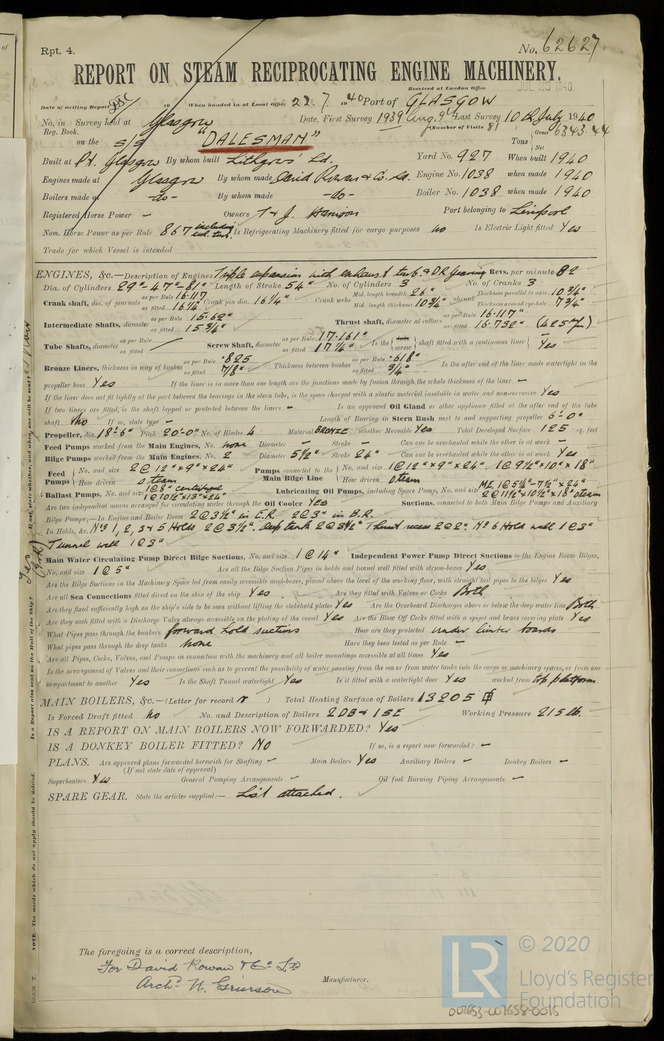 Rpt. 4.
No. 62627
REPORT ON STEAM RECIPROCATING ENGINE MACHINERY.
Received at London Office
Date of writing Report 19 When handed in at Local Office 22.7.1940 Port of GLASGOW
No. in Survey held at Glasgow Date, First Survey 1939 Aug. 9th Last Survey 10th July 1940
Reg. Book. (Number of Visits 81
on the S/S "DALESMAN" Tons Gross 6343.44 Net
Built at Pt. Glasgow By whom built Lithgows Ld. Yard No. 927 When built 1940
Engines made at Glasgow By whom made David Rowan & Co. Ld. Engine No. 1038 when made 1940
Boilers made at -do- By whom made -do- Boiler No. 1038 when made 1940
Registered Horse Power - Owners T & J. Harrison Port belonging to Liverpool
Nom. Horse Power as per Rule 867 including Is Refrigerating Machinery fitted for cargo purposes no Is Electric Light fitted Yes
Trade for which Vessel is intended
ENGINES, &c.—Description of Engines Triple expansion with exhaust turb. & DR gearing Revs. per minute 82
Dia. of Cylinders 29"-47"-81" Length of Stroke 54" No. of Cylinders 3 No. of Cranks 3
Crank shaft, dia. of journals as per Rule 16.117 as fitted 16¼" Crank pin dia. 16¼" Crank webs Mid. length breadth 26" Mid. length thickness 10¾" Thickness parallel to axis 10¾" Thickness around eye-hole 7¾"
Intermediate Shafts, diameter as per Rule 15.62" as fitted 15¾" Thrust shaft, diameter at collars as per Rule 16.117" as fitted 16.732" (425 m/m)
Tube Shafts, diameter as per Rule as fitted Screw Shaft, diameter as per Rule 17.161" as fitted 17¼" Is the screw shaft fitted with a continuous liner Yes
Bronze Liners, thickness in way of bushes as per Rule .825 as fitted 7/8" Thickness between bushes as per Rule .618" as fitted ¾" Is the after end of the liner made watertight in the
propeller boss Yes If the liner is in more than one length are the junctions made by fusion through the whole thickness of the liner -
If the liner does not fit tightly at the part between the bearings in the stern tube, is the space charged with a plastic material insoluble in water and non-corrosive Yes
If two liners are fitted, is the shaft lapped or protected between the liners - Is an approved Oil Gland or other appliance fitted at the after end of the tube
shaft no If so, state type - Length of Bearing in Stern Bush next to and supporting propeller 6'-0"
Propeller, dia. 18'-6" Pitch 20'-0" No. of Blades 4 Material BRONZE whether Moveable Yes Total Developed Surface 125 sq. feet
Feed Pumps worked from the Main Engines, No. none Diameter - Stroke - Can one be overhauled while the other is at work -
Bilge Pumps worked from the Main Engines, No. 2 Diameter 5½" Stroke 24" Can one be overhauled while the other is at work Yes
Feed Pumps No. and size 2 @ 12"x9"x24" How driven Steam Pumps connected to the Main Bilge Line No. and size 1@12"x9"x24", 1@9½"x10"x18" How driven Steam
Ballast Pumps, No. and size 1@8" centrifugal 1@10½"x13"x24" Lubricating Oil Pumps, including Spare Pump, No. and size
Are two independent means arranged for circulating water through the Oil Cooler Yes Suctions, connected to both Main Bilge Pumps and Auxiliary
Bilge Pumps;—In Engine and Boiler Room 2@3½" in E.R. 2@3" in B.R.
In Holds, &c. Nos 1, 2, 3 & 5 Holds 2@3½". Deep tank 2@3½" Thrust recess 2@2". No 6 Hold well 1@3"
Tunnel well 1@3"
Main Water Circulating Pump Direct Bilge Suctions, No. and size 1@14" Independent Power Pump Direct Suctions to the Engine Room Bilges,
No. and size 1@5" Are all the Bilge Suction Pipes in holds and tunnel well fitted with strum-boxes Yes
Are the Bilge Suctions in the Machinery Space led from easily accessible mud-boxes, placed above the level of the working floor, with straight tail pipes to the bilges Yes
Are all Sea Connections fitted direct on the skin of the ship Yes Are they fitted with Valves or Cocks Both
Are they fixed sufficiently high on the ship's side to be seen without lifting the stokehold plates Yes Are the Overboard Discharges above or below the deep water line Both
Are they each fitted with a Discharge Valve always accessible on the plating of the vessel Yes Are the Blow Off Cocks fitted with a spigot and brass covering plate Yes
What Pipes pass through the bunkers forward hold suctions How are they protected under limber boards
What pipes pass through the deep tanks none Have they been tested as per Rule -
Are all Pipes, Cocks, Valves, and Pumps in connection with the machinery and all boiler mountings accessible at all times Yes
Is the arrangement of Valves and their connections such as to prevent the possibility of water passing from the sea or from water tanks into the cargo or machinery spaces, or from one
compartment to another Yes Is the Shaft Tunnel watertight Yes Is it fitted with a watertight door Yes worked from top platform.
MAIN BOILERS, &c.—(Letter for record ) Total Heating Surface of Boilers 13205
Is Forced Draft fitted no No. and Description of Boilers 2DB & 1SE Working Pressure 215 lb.
IS A REPORT ON MAIN BOILERS NOW FORWARDED? Yes
IS A DONKEY BOILER FITTED? NO If so, is a report now forwarded? -
PLANS. Are approved plans forwarded herewith for Shafting - Main Boilers Yes Auxiliary Boilers - Donkey Boilers -
(If not state date of approval)
Superheaters Yes General Pumping Arrangements - Oil fuel Burning Piping Arrangements -
SPARE GEAR. State the articles supplied:— List attached.
The foregoing is a correct description,
For David Rowan & Co. Ld
Archd. W. Grierson Manufacturer.
LR © 2020
Lloyd's Register
Foundation
002653-002658-0015